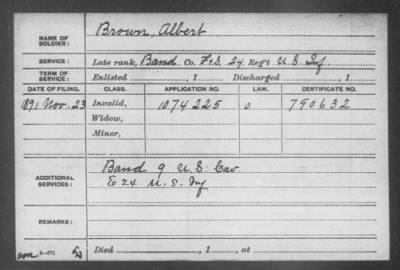 NAME OF SOLDIER: Brown, Albert
SERVICE: Late rank, Band Co. F&S, 24 Reg't U.S. Inf
TERM OF SERVICE: Enlisted , 1 Discharged , 1
DATE OF FILING. CLASS. APPLICATION NO. LAW. CERTIFICATE NO.
1891 Nov. 23 Invalid, 1074225 790632
Widow,
Minor,
ADDITIONAL SERVICES: Band 9 U.S. Cav.
E 24 U.S. Inf
REMARKS:
Died , 1 , at